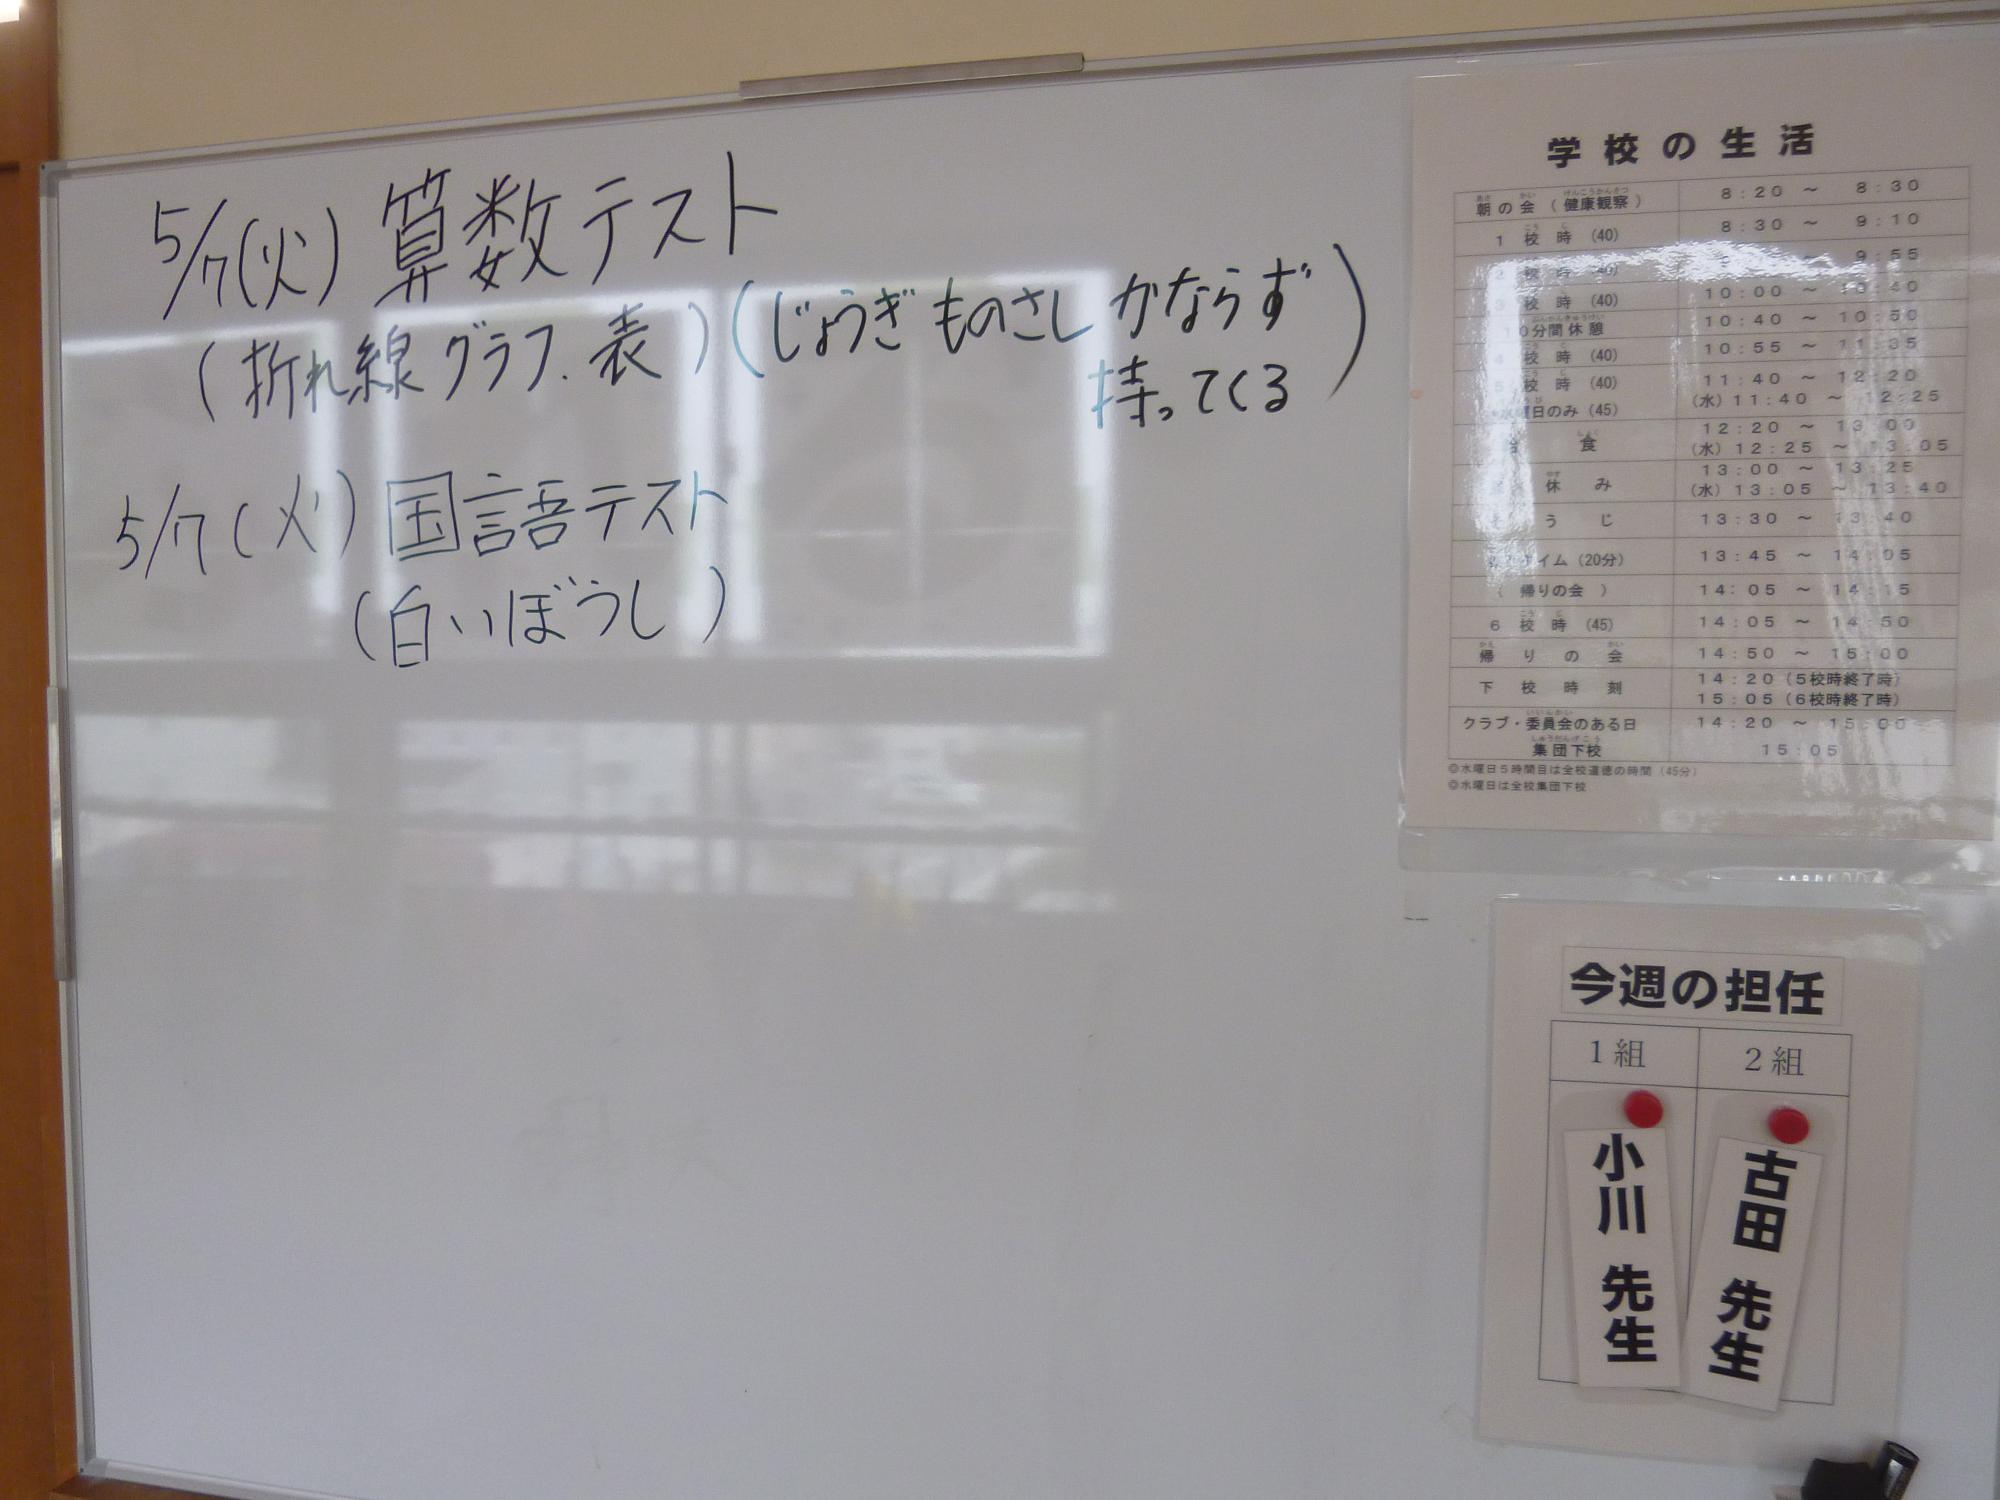 5/7(火) 算数テスト
(折れ線グラフ、表)(じょうぎ ものさし かならず
持ってくる)
5/7(火) 国語テスト
(白いぼうし)
学校の生活
朝の会(健康観察) 8:20 ~ 8:30
1校時(40) 8:30 ~ 9:10
校時(40) 9:55
3校時(40) 10:00 ~ 10:40
10分間休憩 10:40 ~ 10:50
4校時(40) 10:55 ~ 11:35
5校時(40) 11:40 ~ 12:20
曜日のみ(45) (水)11:40 ~ 12:25
食 12:20 ~ 13:00
(水)12:25 ~ 13:05
休み 13:00 ~ 13:25
(水)13:05 ~ 13:40
そうじ 13:30 ~ 13:40
タイム(20分) 13:45 ~ 14:05
(帰りの会) 14:05 ~ 14:15
6校時(45) 14:05 ~ 14:50
帰りの会 14:50 ~ 15:00
下校時刻 14:20(5校時終了時)
15:05(6校時終了時)
クラブ・委員会のある日 14:20 ~ 15:00
集団下校 15:05
◎水曜日5時間目は全校道徳の時間(45分)
◎水曜日は全校集団下校
今週の担任
1組 2組
小川 先生
古田 先生